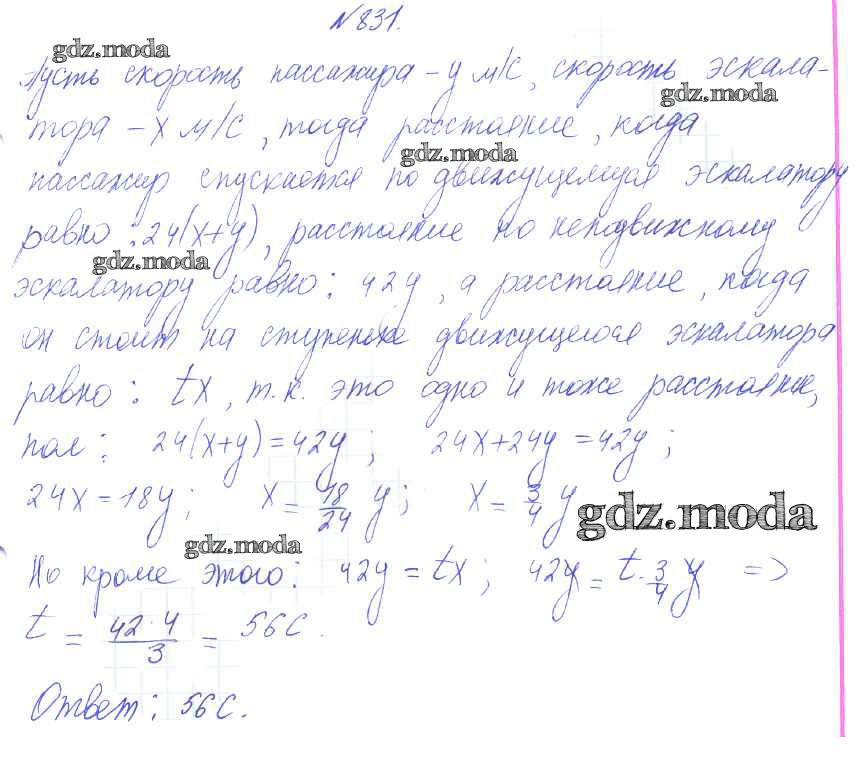 №831.
gdz.moda
Пусть скорость пассажира – y м/с, скорость эскала-
gdz.moda
тора – x м/с, тогда расстояние, когда
gdz.moda
пассажир спускается по движущемуся эскалатору
равно: 24(x+y), расстояние по неподвижному
gdz.moda
эскалатору равно: 42y, а расстояние, когда
он стоит на ступеньке движущегося эскалатора
равно: tx, т.к. это одно и тоже расстояние,
пол: 24(x+y)=42y; 24x+24y=42y;
24x=18y; x=18/24 y; x=3/4 y
gdz.moda
gdz.moda
Но кроме этого: 42y=tx; 42y=t·3/4 y =>
t = 42·4/3 = 56 с.
Ответ: 56 с.